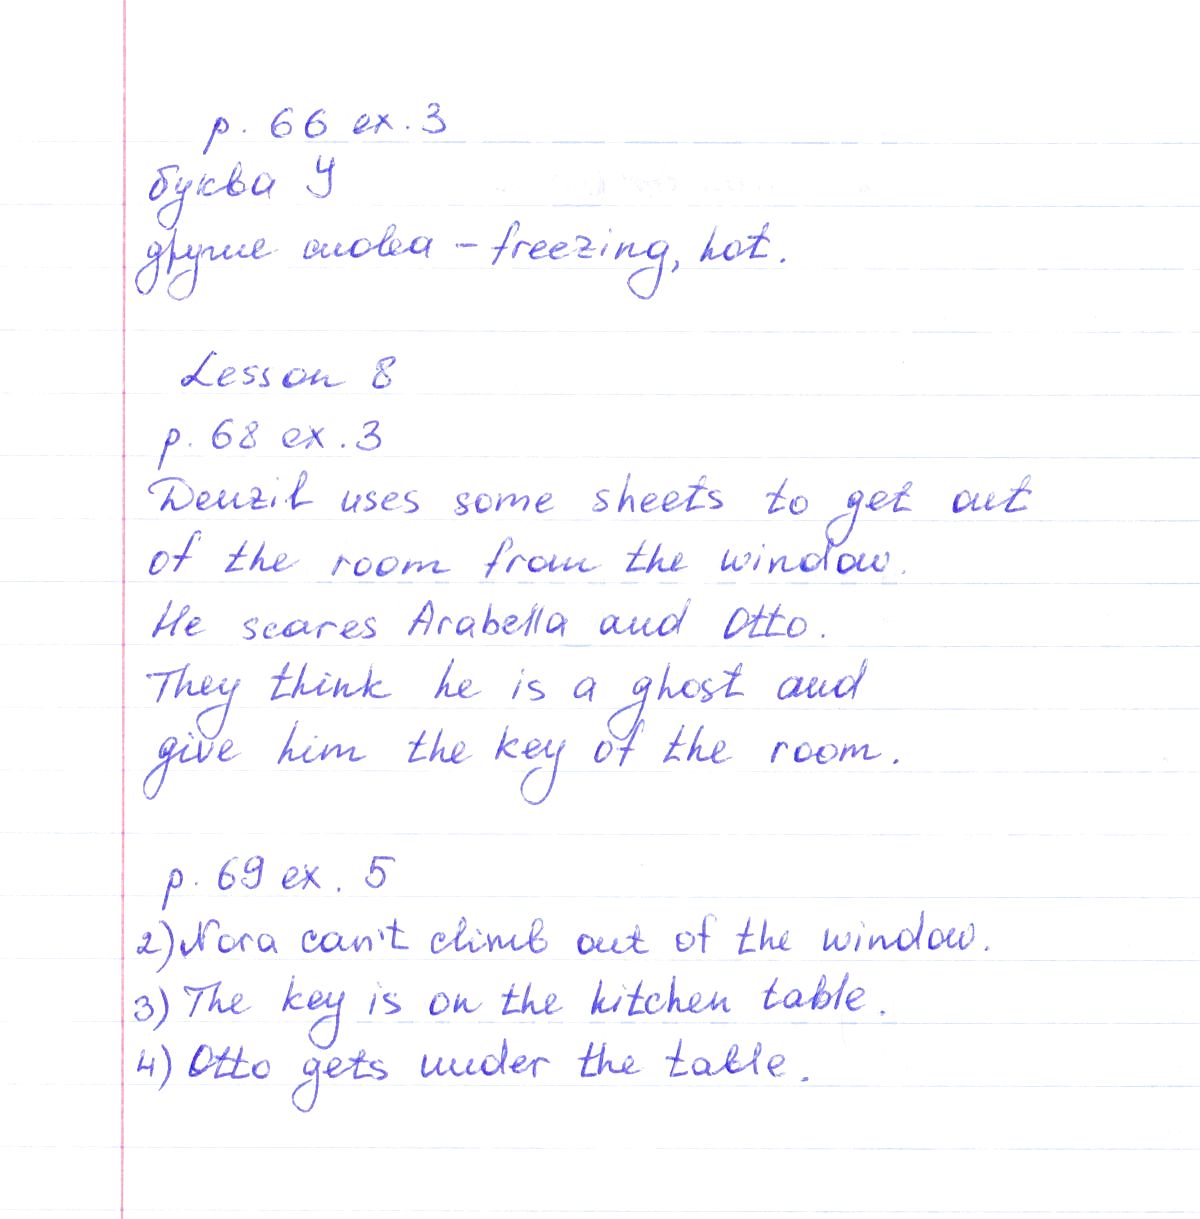 p. 66 ex. 3
буква У
другие слова – freezing, hot.
Lesson 8
p. 68 ex. 3
Denzil uses some sheets to get out
of the room from the window.
He scares Arabella and Otto.
They think he is a ghost and
give him the key of the room.
p. 69 ex. 5
2) Nora can't climb out of the window.
3) The key is on the kitchen table.
4) Otto gets under the table.